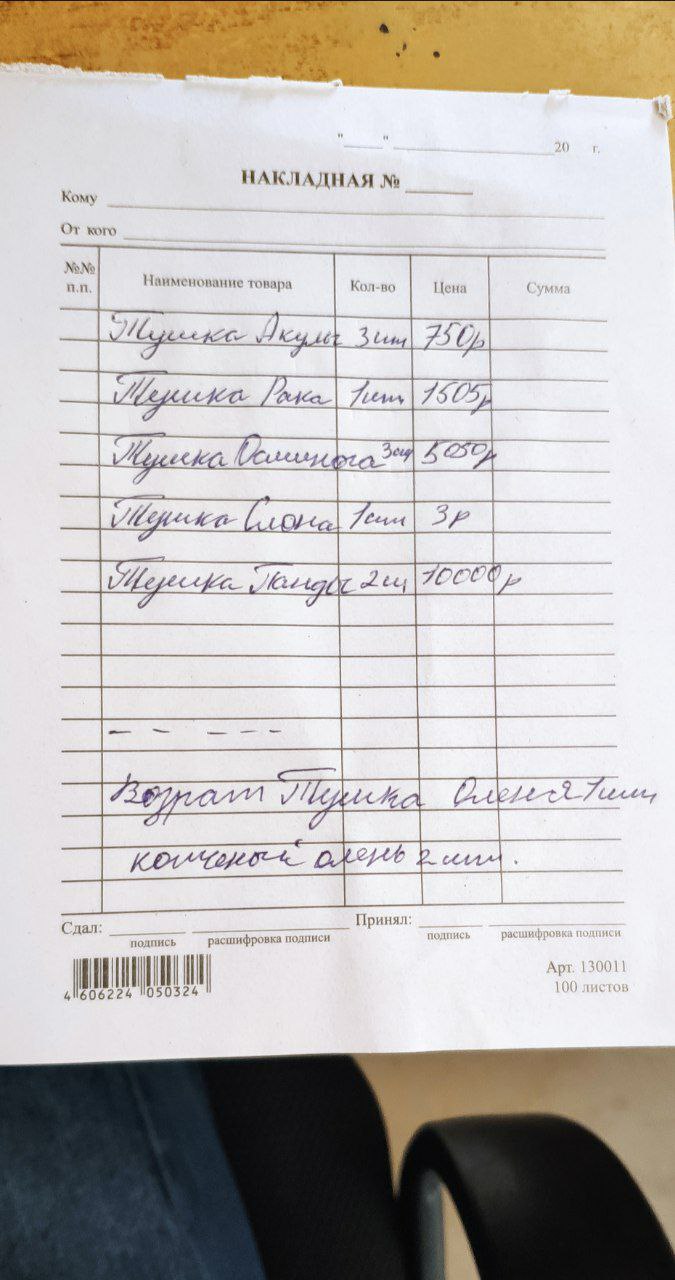 "___" ____________ 20 г.
НАКЛАДНАЯ № ______
Кому
От кого
№№ п.п. Наименование товара Кол-во Цена Сумма
Тушка Акулы 3шт 750р
Тушка Рака 1шт 1505р
Тушка Осминога 3шт 5050р
Тушка Слона 1шт 3р
Тушка Панды 2шт 10000р
— — — — —
Возрат Тушка Оленя 1шт
копченый олень 2шт.
Сдал: Принял:
подпись расшифровка подписи подпись расшифровка подписи
4 606224 050324
Арт. 130011
100 листов